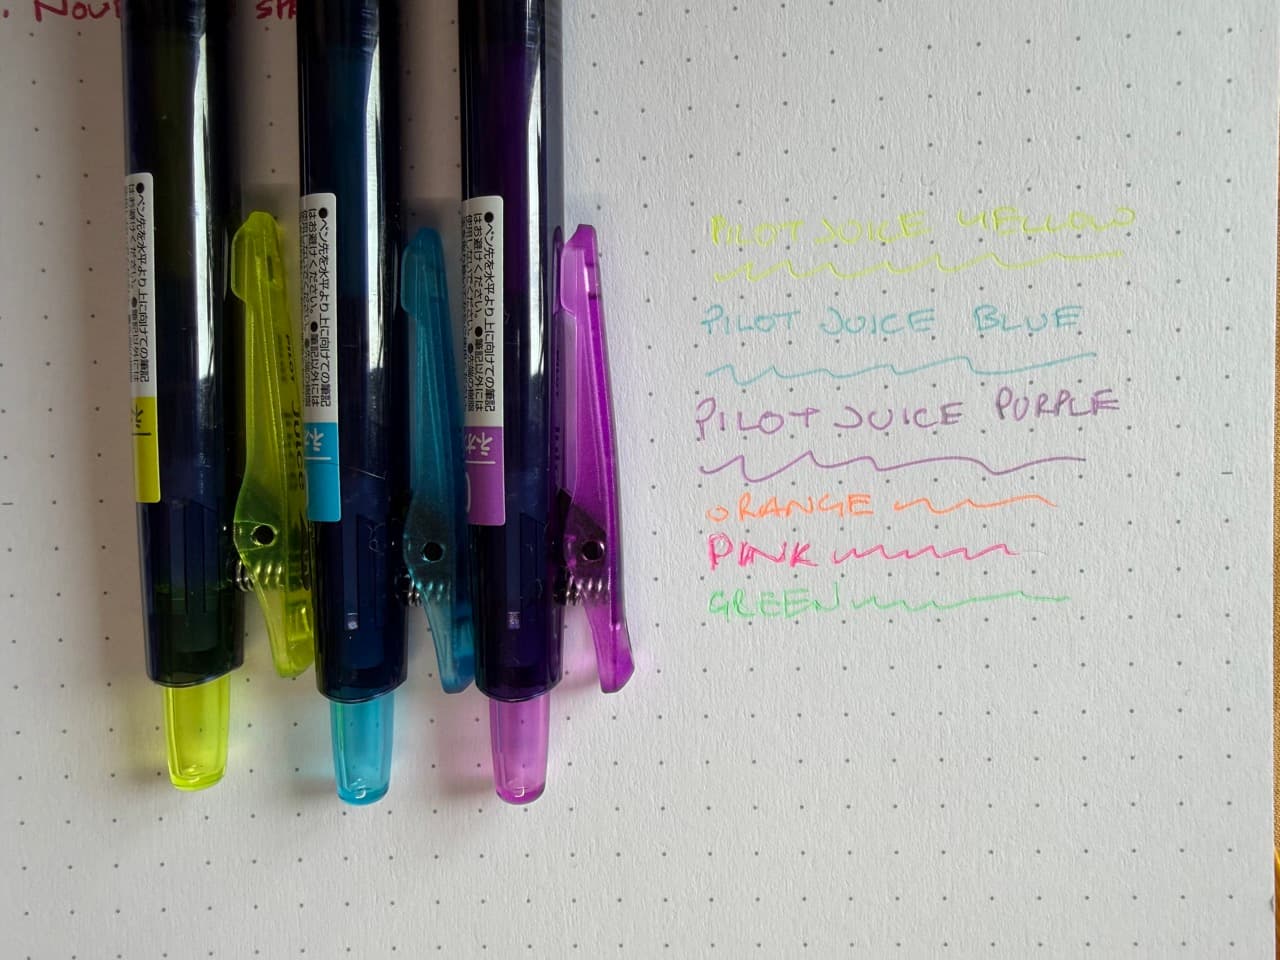 PILOT JUICE YELLOW
PILOT JUICE BLUE
PILOT JUICE PURPLE
ORANGE
PINK
GREEN
●ペン先を水平より上に向けての筆記
はお避けください。●筆記以外には
●ペン先を水平より上に向けての筆記
はお避けください。●筆記以外には
使用しないでください。●先端の樹脂
●ペン先を水平より上に向けての筆記
はお避けください。●筆記以外には
使用しないでください。●先端の樹脂
PILOT
Juice